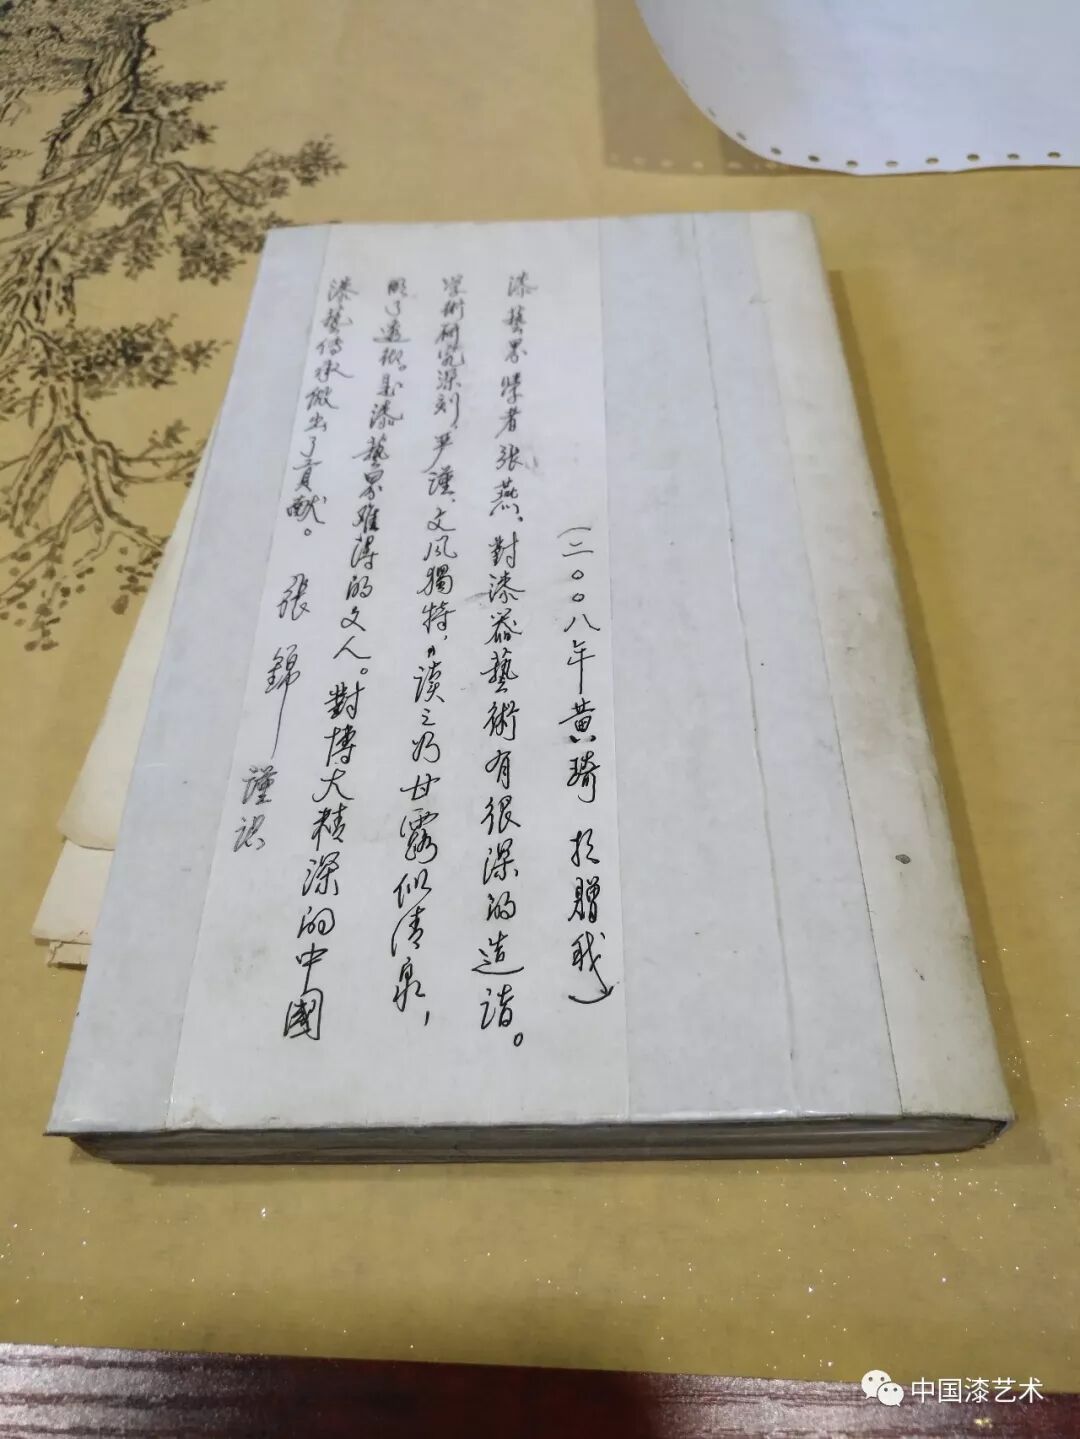 (二〇〇八年黄琦 於贈我)
漆藝界学者張燕、對漆器藝術有很深的造诣。
学術研究深刻、严谨、文风獨特,"读之为甘露似清泉,
明了透彻。是漆藝界难得的文人。對博大精深的中國
漆藝传承做出了貢献。
張錦 謹识
中国漆艺术